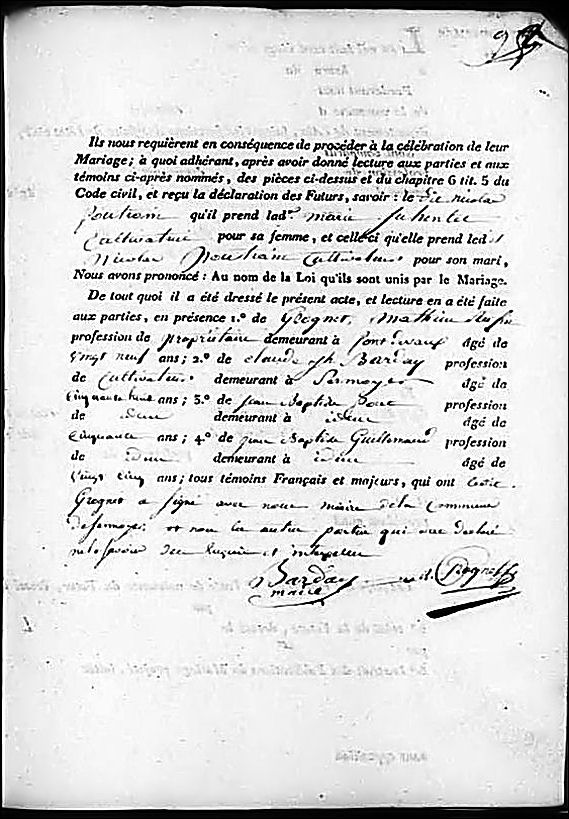 Ils nous requièrent en conséquence de procéder à la célébration de leur
Mariage; à quoi adhérant, après avoir donné lecture aux parties et aux
témoins ci-après nommés, des pièces ci-dessus et du chapitre 6 tit. 5 du
Code civil, et reçu la déclaration des Futurs, savoir: le dit nicolas
qu'il prend lad.e marie
Cultivatrice pour sa femme, et celle-ci qu'elle prend led.t
Nicolas Cultivateur pour son mari,
Nous avons prononcé: Au nom de la Loi qu'ils sont unis par le Mariage.
De tout quoi il a été dressé le présent acte, et lecture en a été faite
aux parties, en présence 1.o de Grognet, Mathieu
profession de propriétaire demeurant à pont de vaux âgé de
vingt neuf ans; 2.o de claude jh Barday profession
de Cultivateur demeurant à Sermoyer âgé de
cinquante ans; 3.o de jean Baptiste profession
de idem demeurant à idem âgé de
Cinquante ans; 4.o de jean Baptiste Guillemaud profession
de idem demeurant à idem âgé de
vingt cinq ans; tous témoins Français et majeurs, qui ont ledit
Grognet a signé avec nous maire de la Commune
de sermoyer et non les autres parties qui ont declaré
ne le savoir de enquis et interpellés
Barday
maire
Grognet